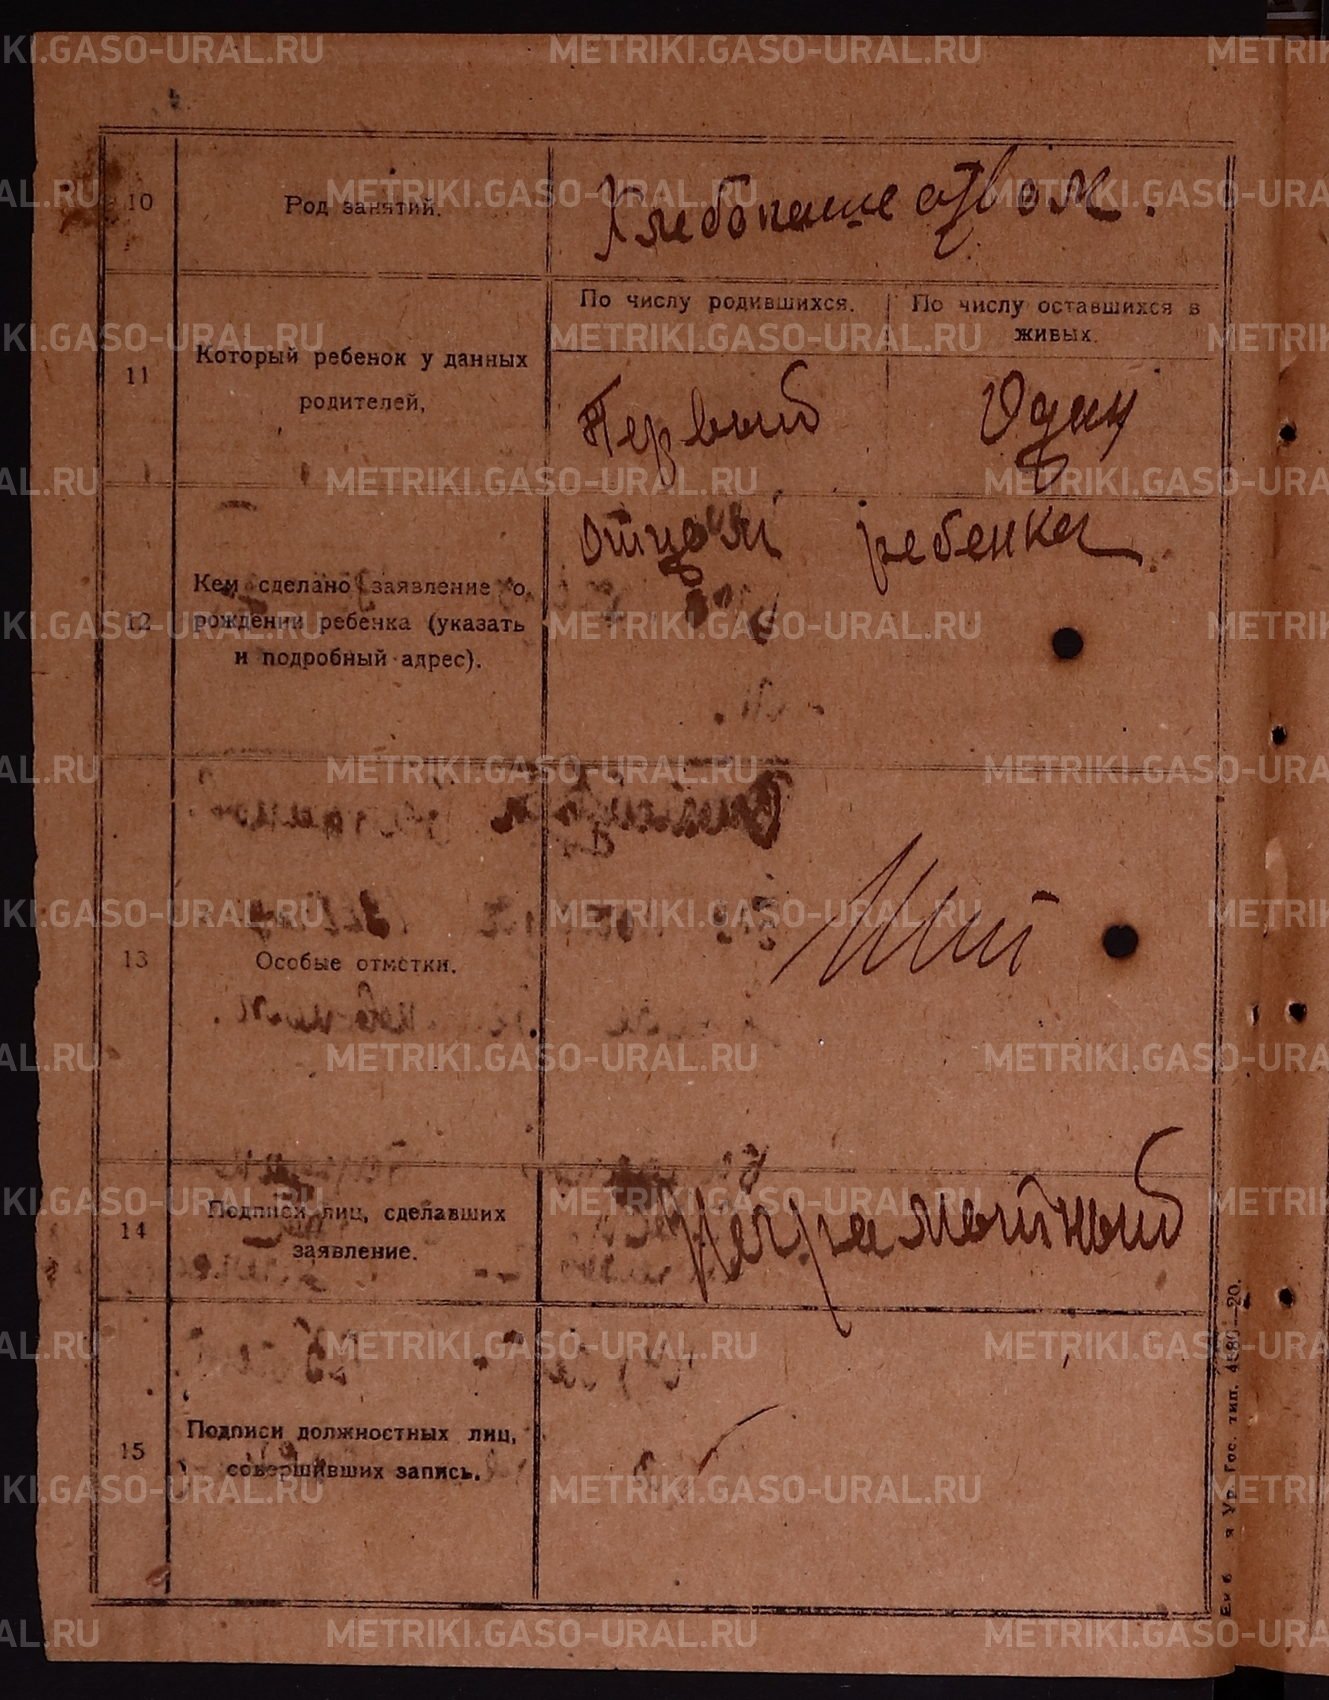 METRIKI.GASO-URAL.RU
10
Род занятий.
Хлебопашеством.
11
Который ребенок у данных
родителей,
По числу родившихся.
По числу оставшихся в
живых.
Первый
Один
12
Кем сделано заявление о
рождении ребенка (указать
и подробный адрес).
отцом ребенка.
13
Особые отметки.
14
Подписи лиц, сделавших
заявление.
Неграмотный
15
Подписи должностных лиц,
совершивших запись.
Ур. Гос. тип.